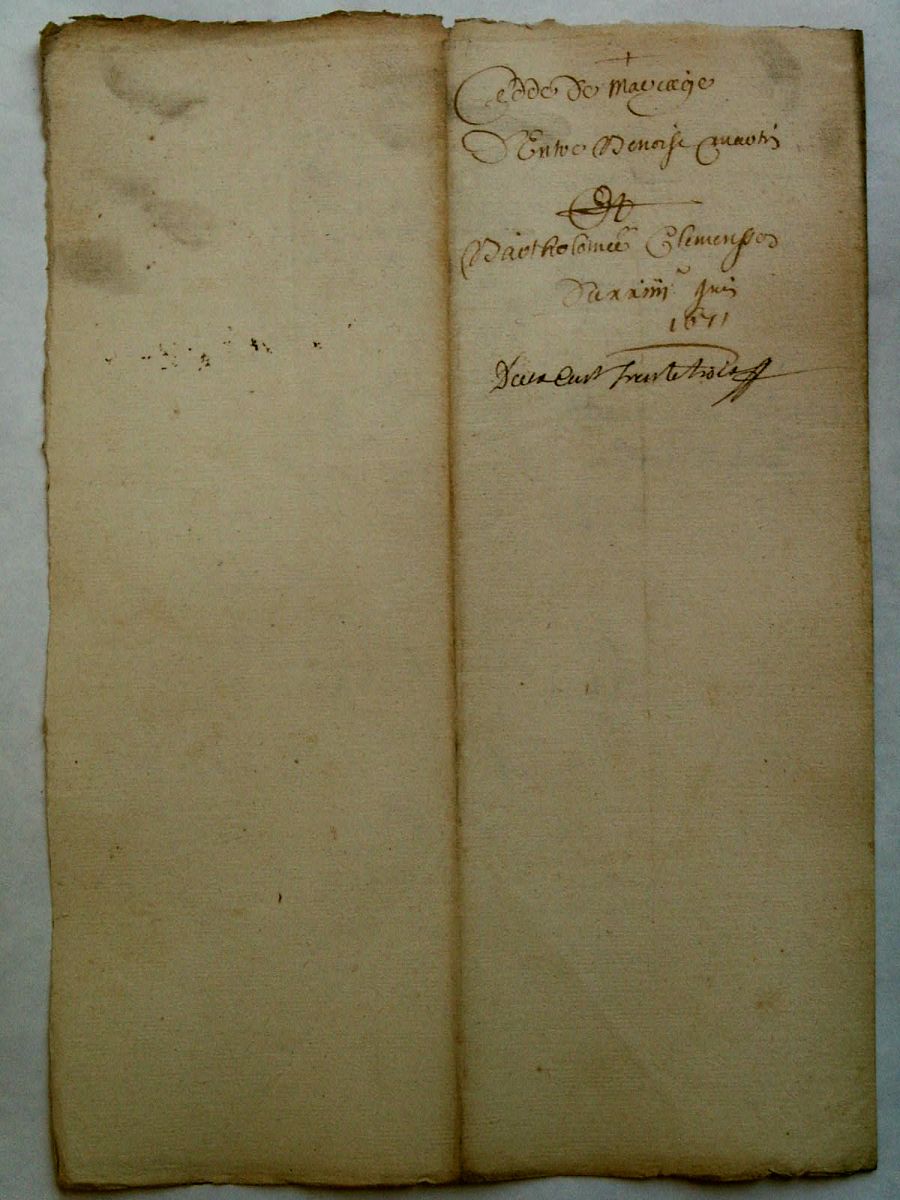 +
Cedde de Mariaige
D'Entre Benoist Martin
Et
Bartholomée Clemensso
Du xxiiii juin
1671
Deux Cent trente trois